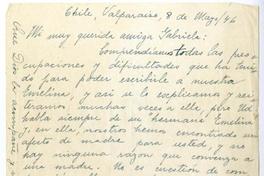 Chile, Valparaíso, 8 de Mayo/46
Mi muy querida amiga Gabriela:
Comprendiamos todas las preo-
cupaciones y dificultades que ha teni-
do para poder escribirle a nuestra
Emelina, y asi se lo explicamos y rei-
teramos muchas veces a ella, pero Ud.
habla siempre de su "hermana" Emelina
y, en ella, nosotros hemos encontrado un
afecto de madre para usted, y no
hay ninguna razon que convenza a
una madre. No es cuestion de com-